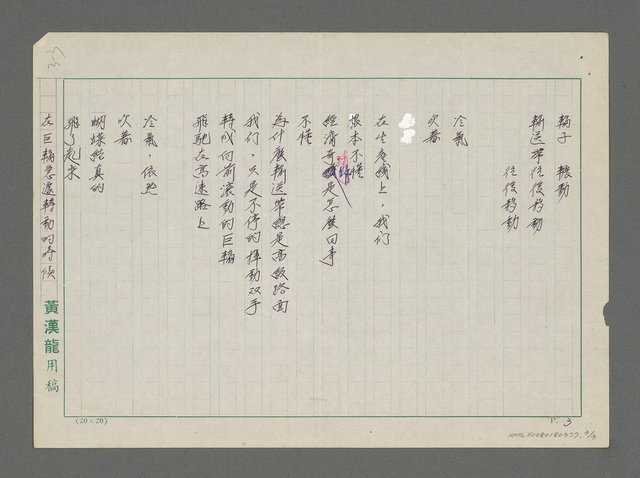 輪子 轉動
輸送帶往後移動
往後移動
冷氣
吹著
在生產線上，我們
根本不懂
經濟奇蹟是怎麼回事
不懂
為什麼輸送帶總是高級路面
我们，只是不停的揮動双手
轉成向前滾動的巨輪
飛馳在高速路上
冷氣，依然
吹着
蝴蝶結真的
飛了起來
在巨輪急速轉動的時候
黃漢龍用稿
(20×20)
P. 3
3-3